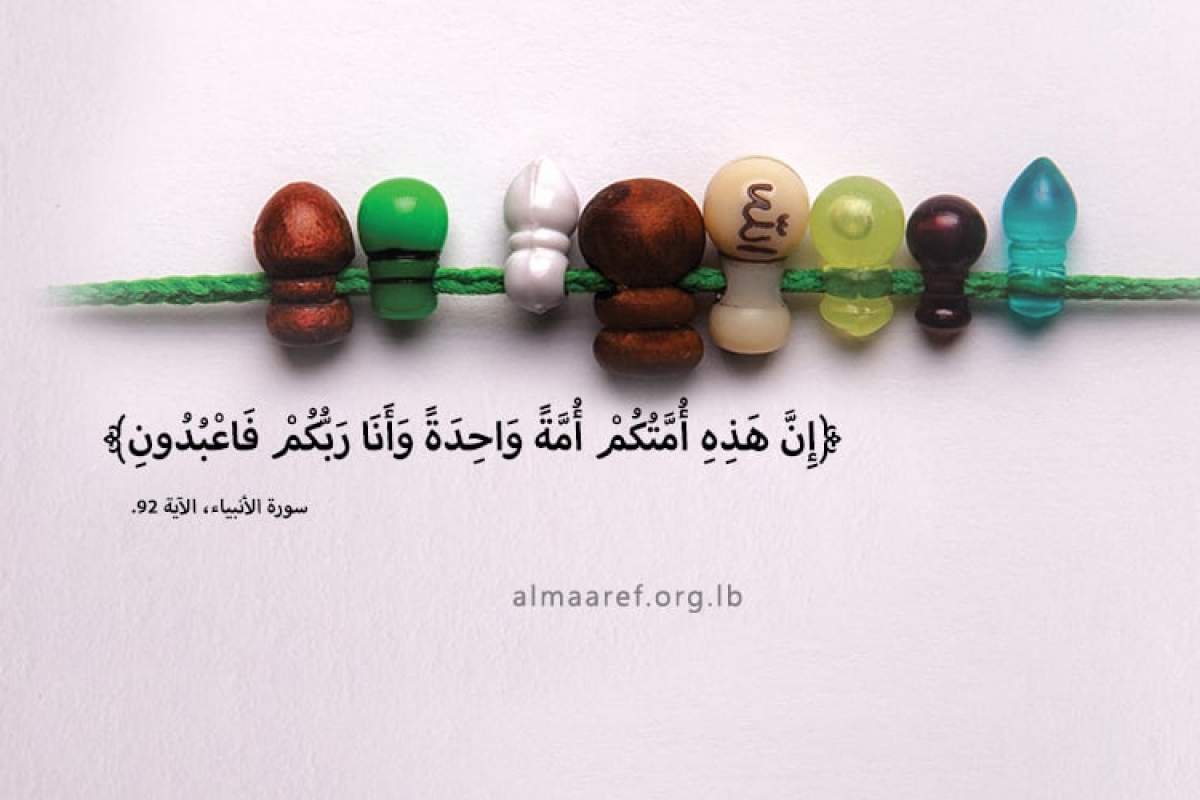 الله
﴿إِنَّ هَذِهِ أُمَّتُكُمْ أُمَّةً وَاحِدَةً وَأَنَا رَبُّكُمْ فَاعْبُدُونِ﴾
سورة الأنبياء، الآية 92.
almaaref.org.lb